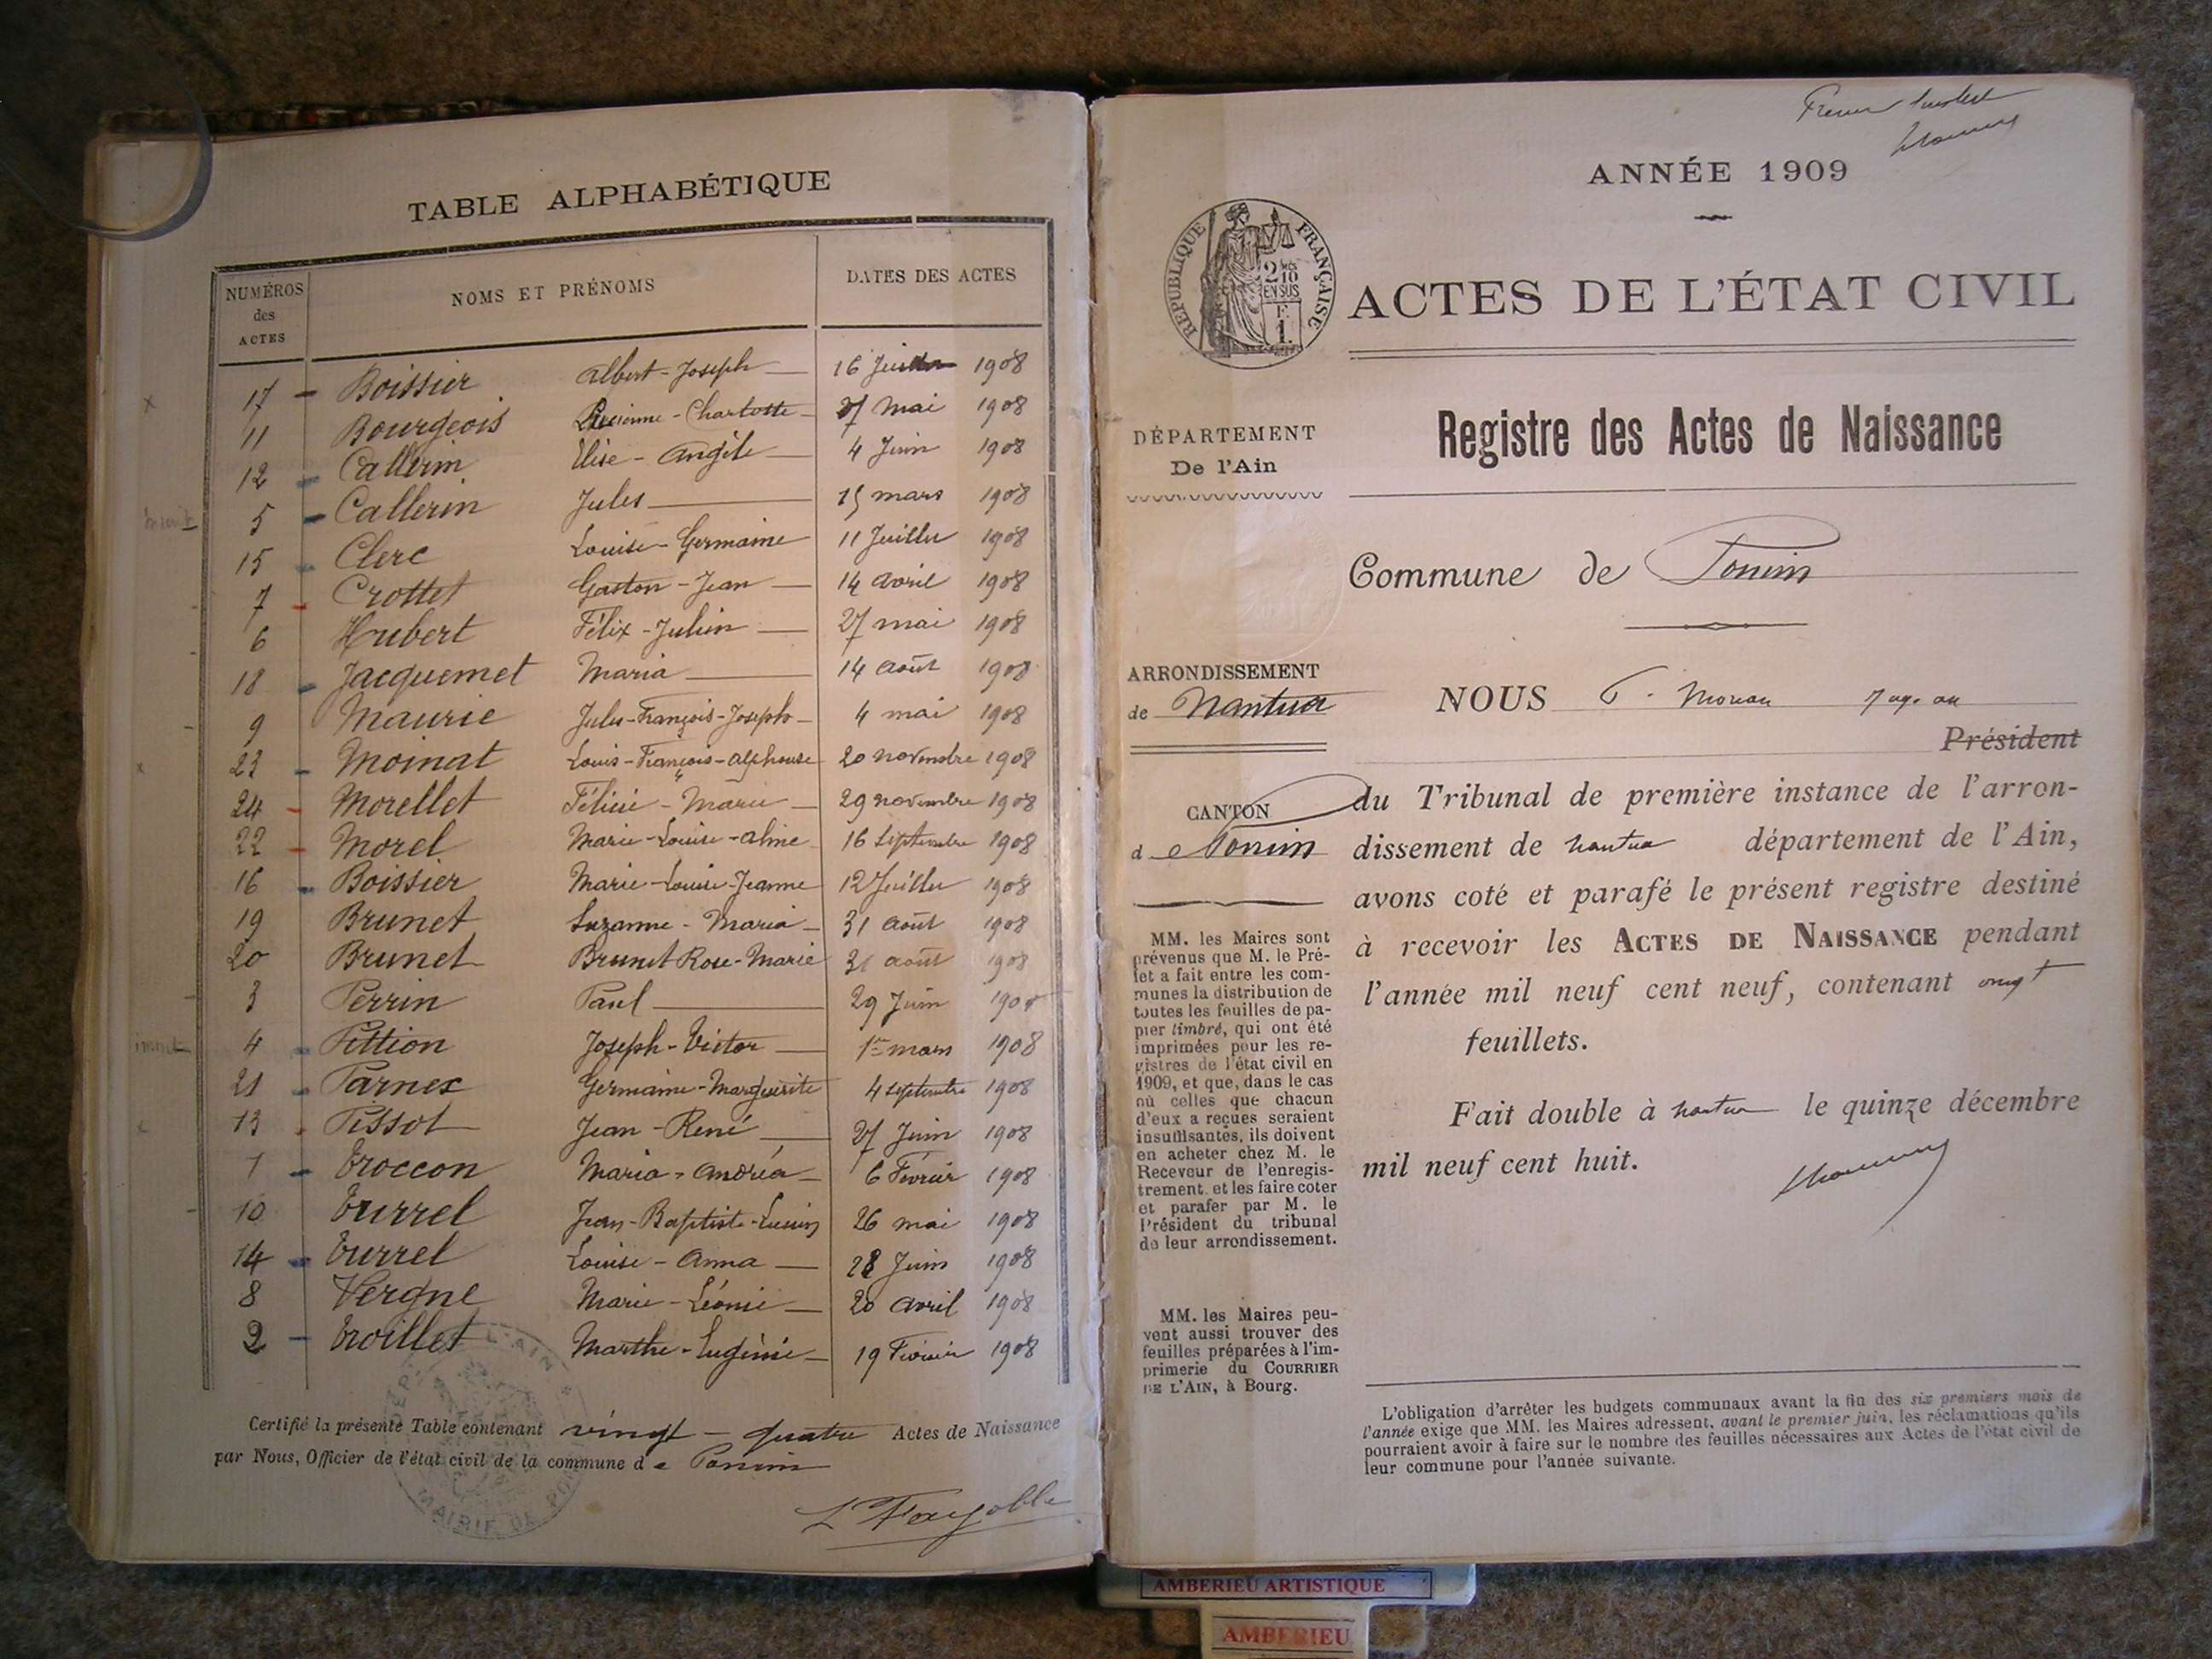 TABLE ALPHABÉTIQUE
NUMÉROS des ACTES
NOMS ET PRÉNOMS
DATES DES ACTES
17 - Boissier Albert-Joseph 16 1908
11 Bourgeois Charlotte 27 mai 1908
12 - Callerin Elise-Angèle 4 Juin 1908
5 - Callerin Jules 15 mars 1908
15 - Clerc Louise-Germaine 11 Juillet 1908
7 - Crottet Gaston-Jean 14 avril 1908
6 Hubert Félix-Julien 27 mai 1908
18 - Jacquemet Maria 14 août 1908
9 Maurie Jules-François-Joseph 4 mai 1908
23 - Moinat Louis-François-Alphonse 20 novembre 1908
24 - Morellet Félicie-Marie 29 novembre 1908
22 - Morel Marie-Louise-Aline 16 Septembre 1908
16 - Boissier Marie-Louise-Jeanne 12 Juillet 1908
19 Brunet Suzanne-Maria 31 août 1908
20 Brunet Brunet Rose-Marie 31 août 1908
3 Perrin Paul 29 Juin 1908
4 - Pittion Joseph-Victor 1er mars 1908
21 - Parnex Germaine-Marguerite 4 septembre 1908
13 - Pissot Jean-René 27 Juin 1908
1 - Troccon Maria-Andréa 6 Février 1908
10 Turrel Jean-Baptiste-Lucien 26 mai 1908
14 - Turrel Louise-Anna 28 Juin 1908
8 Vergne Marie-Léonie 20 avril 1908
2 - Troillet Marthe-Eugénie 19 Février 1908
Certifié la présente Table contenant vingt-quatre Actes de Naissance
par Nous, Officier de l'état civil de la commune de Poncin
L Fayolle
ANNÉE 1909
RÉPUBLIQUE FRANÇAISE
2/10 EN SUS
F. 1.
ACTES DE L'ÉTAT CIVIL
Registre des Actes de Naissance
DÉPARTEMENT
De l'Ain
Commune de Poncin
ARRONDISSEMENT
de Nantua
CANTON
de Poncin
MM. les Maires sont
prévenus que M. le Pré-
fet a fait entre les com-
munes la distribution de
toutes les feuilles de pa-
pier timbré, qui ont été
imprimées pour les re-
gistres de l'état civil en
1909, et que, dans le cas
où celles que chacun
d'eux a reçues seraient
insuffisantes, ils doivent
en acheter chez M. le
Receveur de l'enregis-
trement. et les faire coter
et parafer par M. le
Président du tribunal
de leur arrondissement.
MM. les Maires peu-
vent aussi trouver des
feuilles préparées à l'im-
primerie du COURRIER
DE L'AIN, à Bourg.
NOUS
Président
du Tribunal de première instance de l'arron-
dissement de Nantua département de l'Ain,
avons coté et parafé le présent registre destiné
à recevoir les ACTES DE NAISSANCE pendant
l'année mil neuf cent neuf, contenant
feuillets.
Fait double à Nantua le quinze décembre
mil neuf cent huit.
L'obligation d'arrêter les budgets communaux avant la fin des six premiers mois de
l'année exige que MM. les Maires adressent, avant le premier juin, les réclamations qu'ils
pourraient avoir à faire sur le nombre des feuilles nécessaires aux Actes de l'état civil de
leur commune pour l'année suivante.
AMBERIEU ARTISTIQUE
AMBERIEU